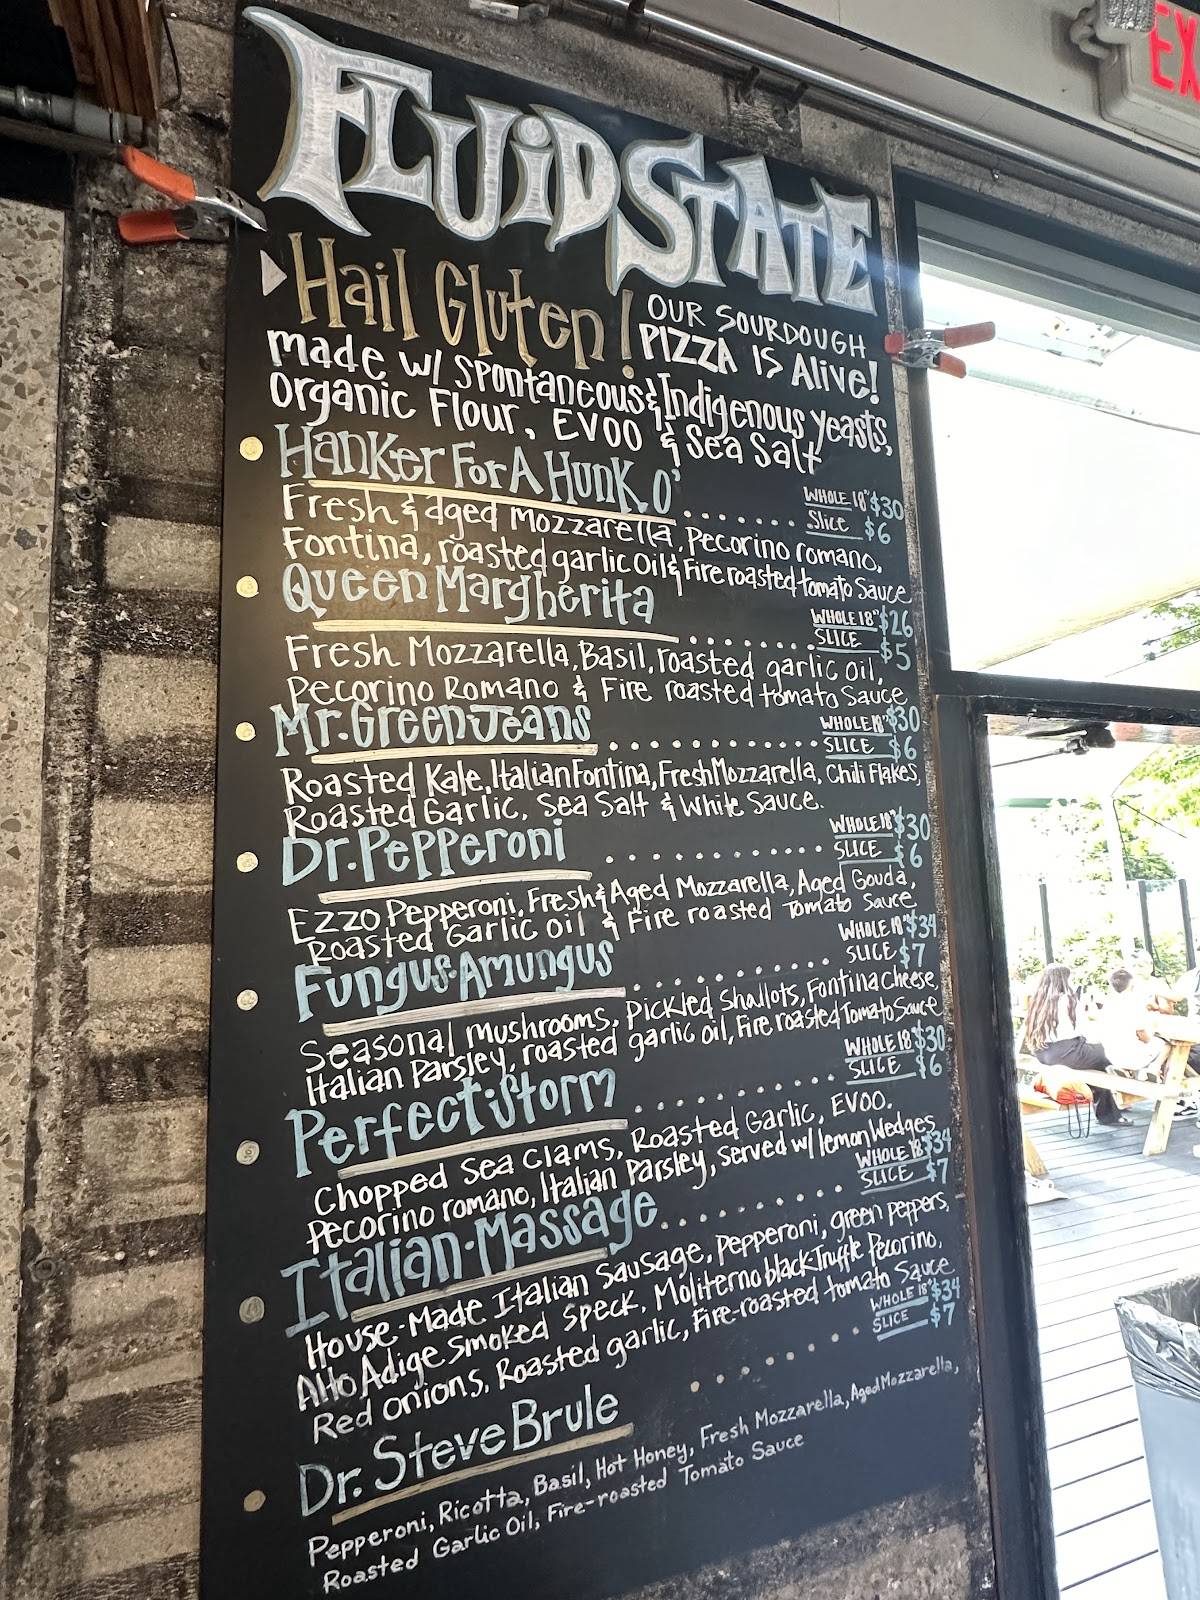 EX
FLUiD STATE
Hail Gluten!
OUR SOURDOUGH
PIZZA IS Alive!
made w/ spontaneous & Indigenous yeasts,
Organic Flour, EVOO & Sea Salt
HanKer For A HunK O'
WHOLE 18" $30
Slice $6
Fresh & aged Mozzarella, Pecorino romano,
Fontina, roasted garlic oil & Fire roasted tomato Sauce
Queen Margherita
WHOLE 18" $26
SLICE $5
Fresh Mozzarella, Basil, roasted garlic oil,
Pecorino Romano & Fire roasted tomato Sauce
Mr. Green Jeans
WHOLE 18" $30
SLICE $6
Roasted Kale, Italian Fontina, Fresh Mozzarella, Chili Flakes,
Roasted Garlic, Sea Salt & White Sauce.
Dr. Pepperoni
WHOLE 18" $30
SLICE $6
Ezzo Pepperoni, Fresh & Aged Mozzarella, Aged Gouda,
Roasted Garlic oil & Fire roasted Tomato Sauce
Fungus Amungus
WHOLE 18" $34
SLICE $7
Seasonal mushrooms, Pickled Shallots, Fontina Cheese,
Italian Parsley, roasted garlic oil, Fire roasted Tomato Sauce
Perfect Storm
WHOLE 18" $30
SLICE $6
Chopped Sea Clams, Roasted Garlic, EVOO.
Pecorino romano, Italian Parsley, served w/ lemon Wedges
Italian Massage
WHOLE 18" $34
SLICE $7
House-Made Italian Sausage, Pepperoni, green peppers,
Alto Adige Smoked Speck, Moliterno black Truffle Pecorino,
Red Onions, Roasted garlic, Fire-roasted tomato Sauce
Dr. Steve Brule
WHOLE 18" $34
SLICE $7
Pepperoni, Ricotta, Basil, Hot Honey, Fresh Mozzarella, Aged Mozzarella,
Roasted Garlic Oil, Fire-roasted Tomato Sauce